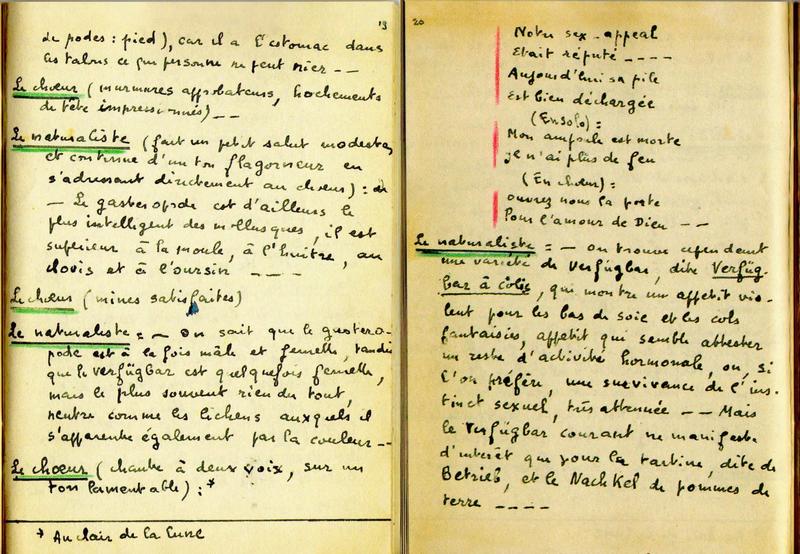 13
de podes : pied), car il a l'estomac dans
les talons ce que personne ne peut nier --
Le chœur (murmures approbateurs, hochements
de tête impressionnés) --
Le naturaliste (fait un petit salut modeste,
et continue d'un ton flagorneur en
s'adressant directement au chœur) :
— Le gasteropode est d'ailleurs le
plus intelligent des mollusques, il est
supérieur à la moule, à l'huitre, au
clovis et à l'oursin ----
Le chœur (mines satisfaites)
Le naturaliste = — On sait que le gastero-
pode est à la fois mâle et femelle, tandis
que le verfügbar est quelquefois femelle,
mais le plus souvent rien du tout,
neutre comme les lichens auxquels il
s'apparente également par la couleur --
Le chœur (chante à deux voix, sur un
ton lamentable) : *
* Au clair de la lune
20
Notre sex-appeal
Etait réputé ----
Aujourd'hui sa pile
Est bien déchargée
(En solo) :
Mon ampoule est morte
je n'ai plus de feu
(En chœur) :
ouvrez nous la porte
Pour l'amour de Dieu --
Le naturaliste = — on trouve cependant
une variété de verfügbar, dite Verfüg-
bar à colis, qui montre un appétit vio-
lent pour les bas de soie et les cols
fantaisies, appétit qui semble attester
un reste d'activité hormonale, ou, si
l'on préfère, une survivance de l'ins-
tinct sexuel, très attenuée -- Mais
le Verfügbar courant ne manifeste
d'intérêt que pour la tartine, dite de
Betrieb, et le Nachkel de pommes de
terre ----